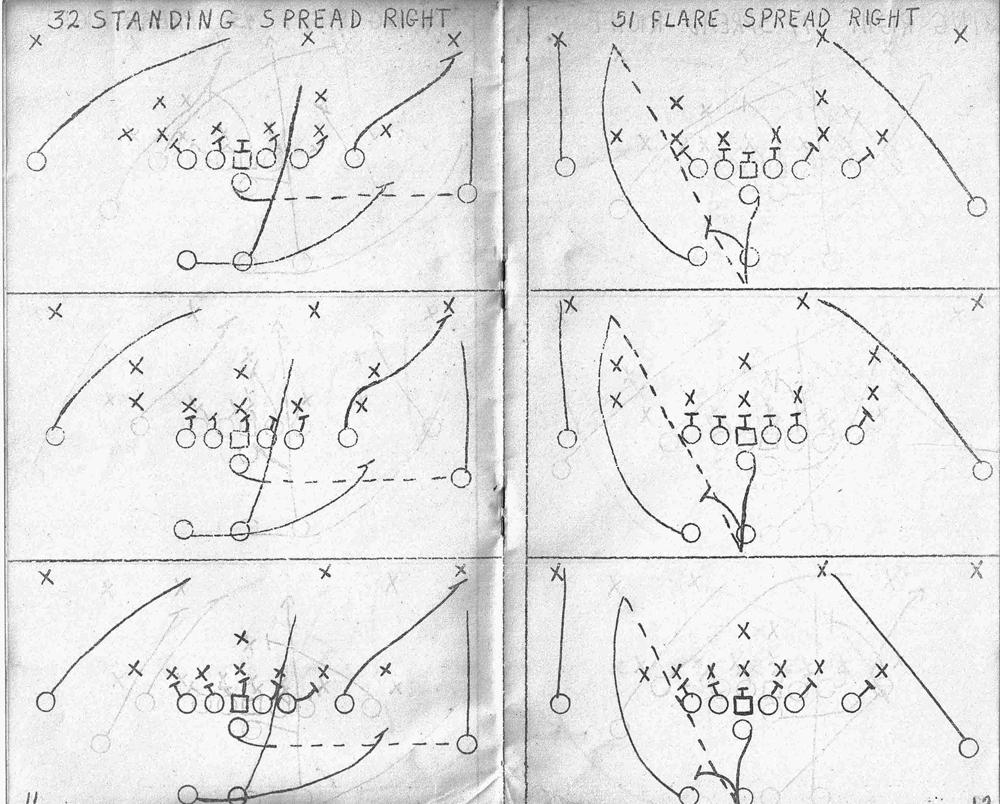 32 STANDING SPREAD RIGHT
51 FLARE SPREAD RIGHT
11